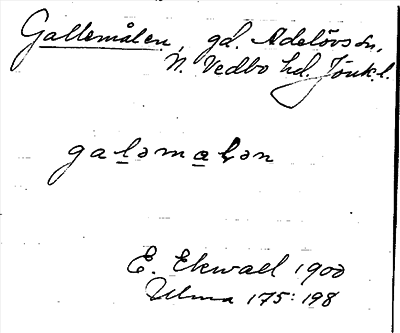 Gallemålen, gd. Adelövs sn.
N. Vedbo hd. Jönk. l.
galəmaḷən
E. Ekwall 1900
Ulma 175:198